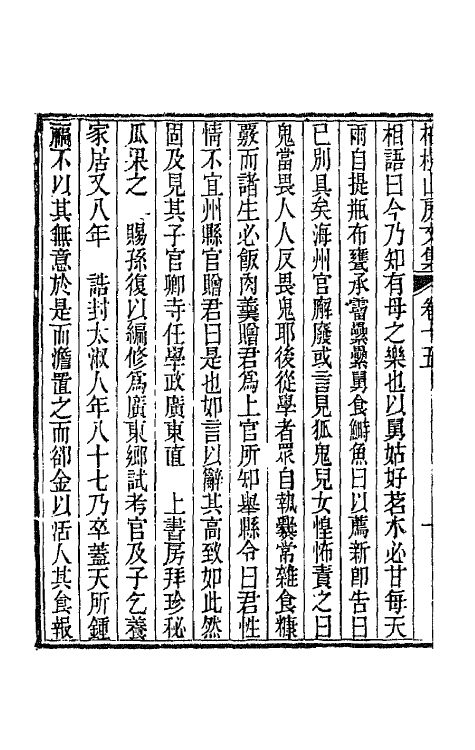 柏梘山房文集 卷十五
相語曰今乃知有母之樂也以舅姑好茗水必甘每天
雨自提瓶布甕承霤纍纍舅食鰣魚曰以薦新卽告曰
已別具矣海州官廨廢或言見狐鬼兒女惶怖責之曰
鬼當畏人人反畏鬼耶後從學者眾自執爨常雜食糠
覈而諸生必飯肉羹贈君爲上官所知舉縣令曰君性
情不宜州縣官贈君曰是也如言以辭其高致如此然
固及見其子官卿寺任學政廣東直 上書房拜珍秘
瓜果之 賜孫復以編修爲廣東鄉試考官及子乞養
家居又八年 誥封太淑人年八十七乃卒蓋天所鍾
福不以其無意於是而澹置之而卻金以活人其食報